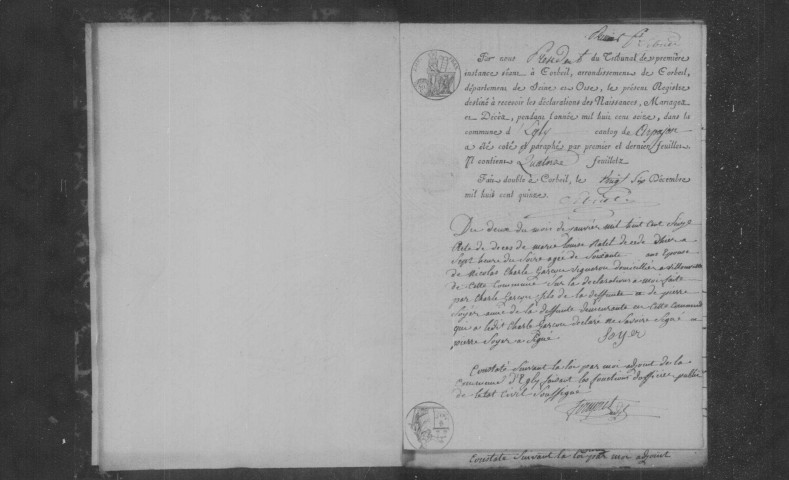 Par nous Président du Tribunal de première
instance séant à Corbeil, arrondissement de Corbeil,
département de Seine et Oise, le présent Registre
destiné à recevoir les déclarations des Naissances, Mariages
et Décès, pendant l'année mil huit cent seize, dans la
commune d'Egly canton de Arpajon
a été coté et paraphé par premier et dernier feuillet
Il contient Quatorze feuillets
Fait double à Corbeil, le Vingt Six Décembre
mil huit cent quinze.
Du deux du mois de janvier mil huit cent Seize
Acte de deces de marie Louise decede dhier a
Sept heure du Soire agee de Soixante ans Epouse
de Nicolas Charle Garçon vigneron domicillier a villouvette
de cette Commune Sur la declaration a moi faite
par Charle Garçon fils de la deffunte et de pierre
Soyer amie de la deffunte demeurante en cette Commune
qui a ledit Charle Garçon declaré ne Savoire Signé et
pierre Soyer a Signé Soyer
Constaté Suivant la loi par moi adjoint de la
Commune d'Egly faisant les fonctions d'officier public
de letat Civil Soussigné
Constaté Suivant la loi par moi adjoint